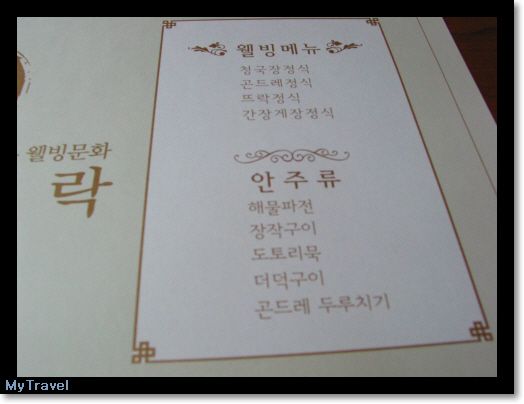 웰빙메뉴
청국장정식
곤드레정식
뜨락정식
간장게장정식
웰빙문화
락
안주류
해물파전
장작구이
도토리묵
더덕구이
곤드레 두루치기
MyTravel